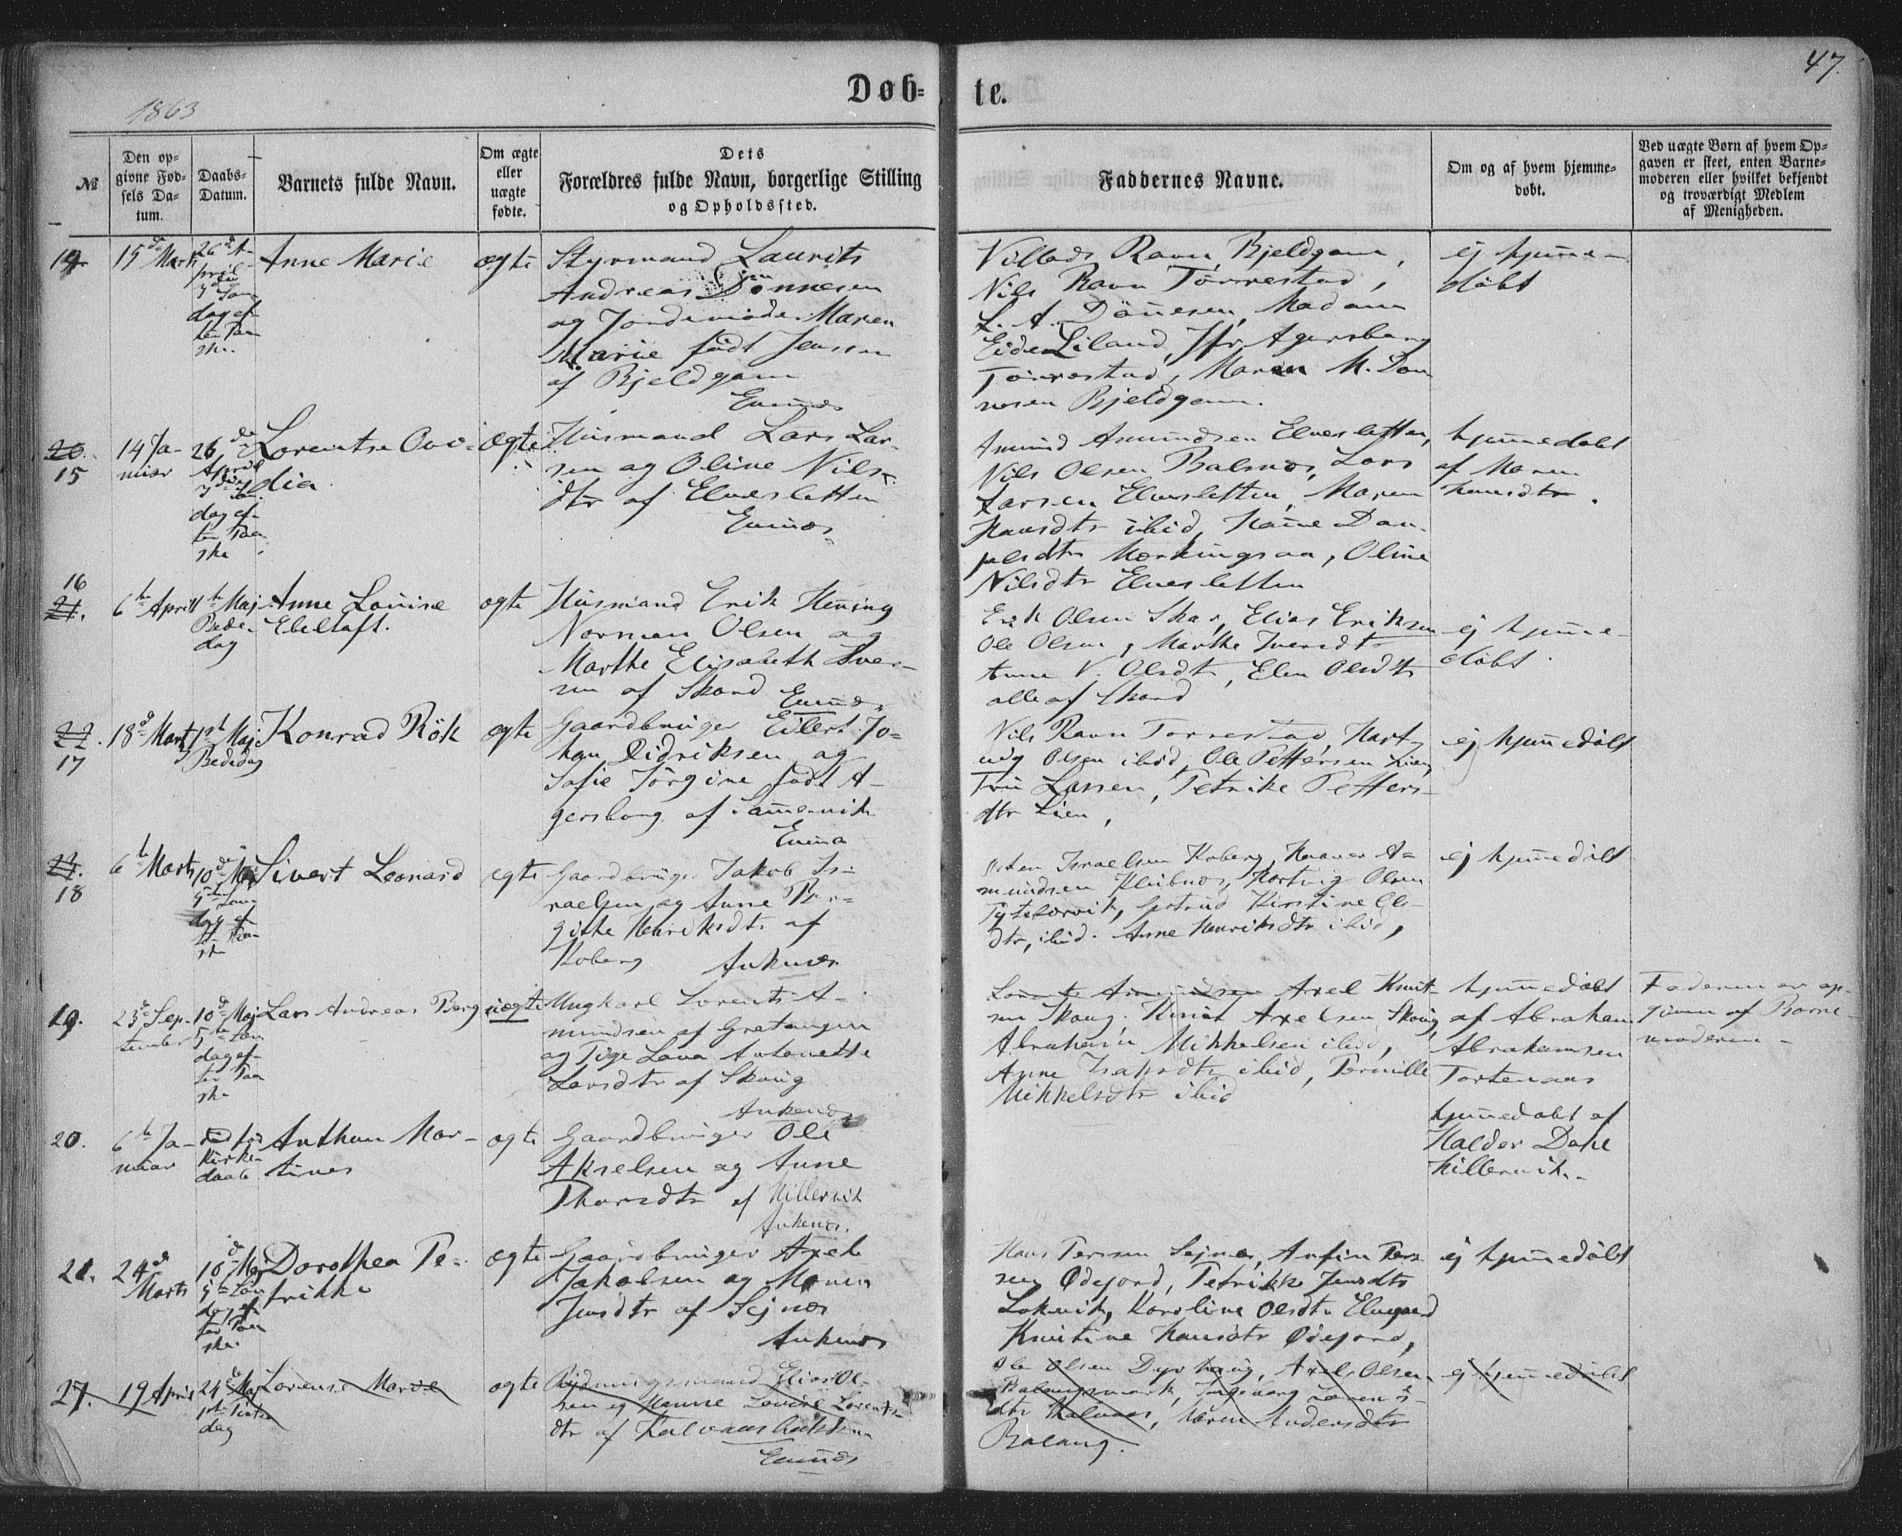 47.
1863
Døb-
te.
№
Den op-
givne Fød-
sels Da-
tum.
Daabs-
Datum.
Barnets fulde Navn.
Om ægte
eller
uægte
fødte.
Dets
Forældres fulde Navn, borgerlige Stilling
og Opholdssted.
Faddernes Navne.
Om og af hvem hjemme-
døbt.
Ved uægte Børn af hvem Op-
gaven er skeet, enten Barne-
moderen eller hvilket bekjendt
og troværdigt Medlem
af Menigheden.
14
15de Marts
26de A-
pril
3die Søn
dag ef-
ter Paa-
ske.
Anne Marie
ægte
Styrmand Laurits
Andreas Dønnesen
og Jordemoder Maren
Marie født Jenssen
af Bjeldgam
Evenæs
Villads Ravn, Bjeldgam,
Nils Ravn Tørrestad,
L. A. Dønnesen, Madam
Liland, Jfr Agersborg
Tørrestad, Maren M. Døn
nesen Bjeldgam.
ej hjemme-
døbt
20.
15
14 Ja-
nuar
26de
April
3die Søn
dag ef-
ter Paa
ske
Lorentse Ovi-
dia
ægte
Husmand Lars Lar-
sen og Oline Nils-
dtr af Elvesletten
Evenæs
Amund Amundsen Elvesletten,
Nils Olsen Balsnæs, Lars
Larsen Elvesletten, Maren
Hansdtr ibid, Hanne Dan-
ielsdtr, Oline
Nilsdtr Elvesletten
hjemmedøbt
af Maren
Hansdtr.
16
21.
6te April
1ste Maj
Bede-
dag
Anne Lovise
Ebeltoft.
ægte
Husmand Erik Hening
Norman Olsen og
Marthe Elisabeth Iver-
sen af Skard
Evenæs
Erik Olsen Skar, Elias Eriksen
Ole Olsen, Marthe Iversdtr
Anne V. Olsdtr, Elen Olsdtr
alle af Skard
ej hjemme-
døbt.
22.
17
18de Marts
1ste Maj
Bededag
Konrad Rök
ægte
Gaardbruger Eilert Jo-
han Didriksen og
Sofie Jörgine født A-
gersborg af
Evenæs
Nils Ravn Tørrestad, Hart-
vig Olsen ibid, Ole Pettersen Lien,
Fru Lassen, Petrike Petters-
dtr Lien,
ej hjemmedøbt
23.
18
6te Marts
10de Maj
5te Søn
dag ef-
ter Paa-
ske
Sivert Leonard
ægte
Gaardbruger Jakob Is-
raelsen og Anne Bir-
gitte Henriksdtr af
Koberg Ankenæs
Israelsen Koberg, A-
mundsen Klubnæs, Hartvig Olsen
Tytebærvik, Gertrud Kirstine Ols-
dtr, ibid. Anne Henriksdtr ibid,
ej hjemmedøbt
19.
23de Sep-
tember
10de Maj
5te Søn
dag ef-
ter Paa
ske
Lars Andreas Berg
uægte
Ungkarl Lorents A-
mundsen af Gratangen
og Pige Lava Antonette
Larsdtr af Skoug
Ankenæs
Lorents Amundsen Axel Knut-
sen Skoug, Knut Axelsen Skoug,
Abraham Mikkelsen ibid,
Anne Isaksdtr ibid, Pernille
Mikkelsdtr ibid
hjemmedøbt
af Abraham
Abrahamsen
Tortenaas
Faderen er op-
given af Barne-
moderen-
20.
6te Ja-
nuar
død før
Kirke-
daab
Anthon Mar-
tines
ægte
Gaardbruger Ole
Akselsen og Anne
Thorsdtr af Hillervik
Ankenæs.
hjemmedøbt af
Haldor Dahl
Hillervik.
21.
24de
Marts
10de Maj
5te Søn
dag ef-
ter Paa
ske
Dorothea Pe-
trikke
ægte
Gaardbruger Axel
Jakobsen og Maren
Jensdtr af Sejnæs
Ankenæs
Hans Persen Sejnæs, Arfin Per-
sen Ødejord, Petrikke Jensdtr
Lakvik, Karoline Olsdtr Elvegaard
Kristine Hansdtr Ødejord,
ej hjemmedøbt
27.
19 April
24de Maj
1ste Pintse
dag
Lorense Marie
ægte
Rydningsmand Elias Ol-
sen og Hanne Lovise Lorents-
dtr af
Evenæs
Ole Olsen Dyrhaug, Axel Olsen
Balangsmark, Ingeborg Lorents-
dtr, Maren Andersdtr
Balang.
ej hjemmedøbt